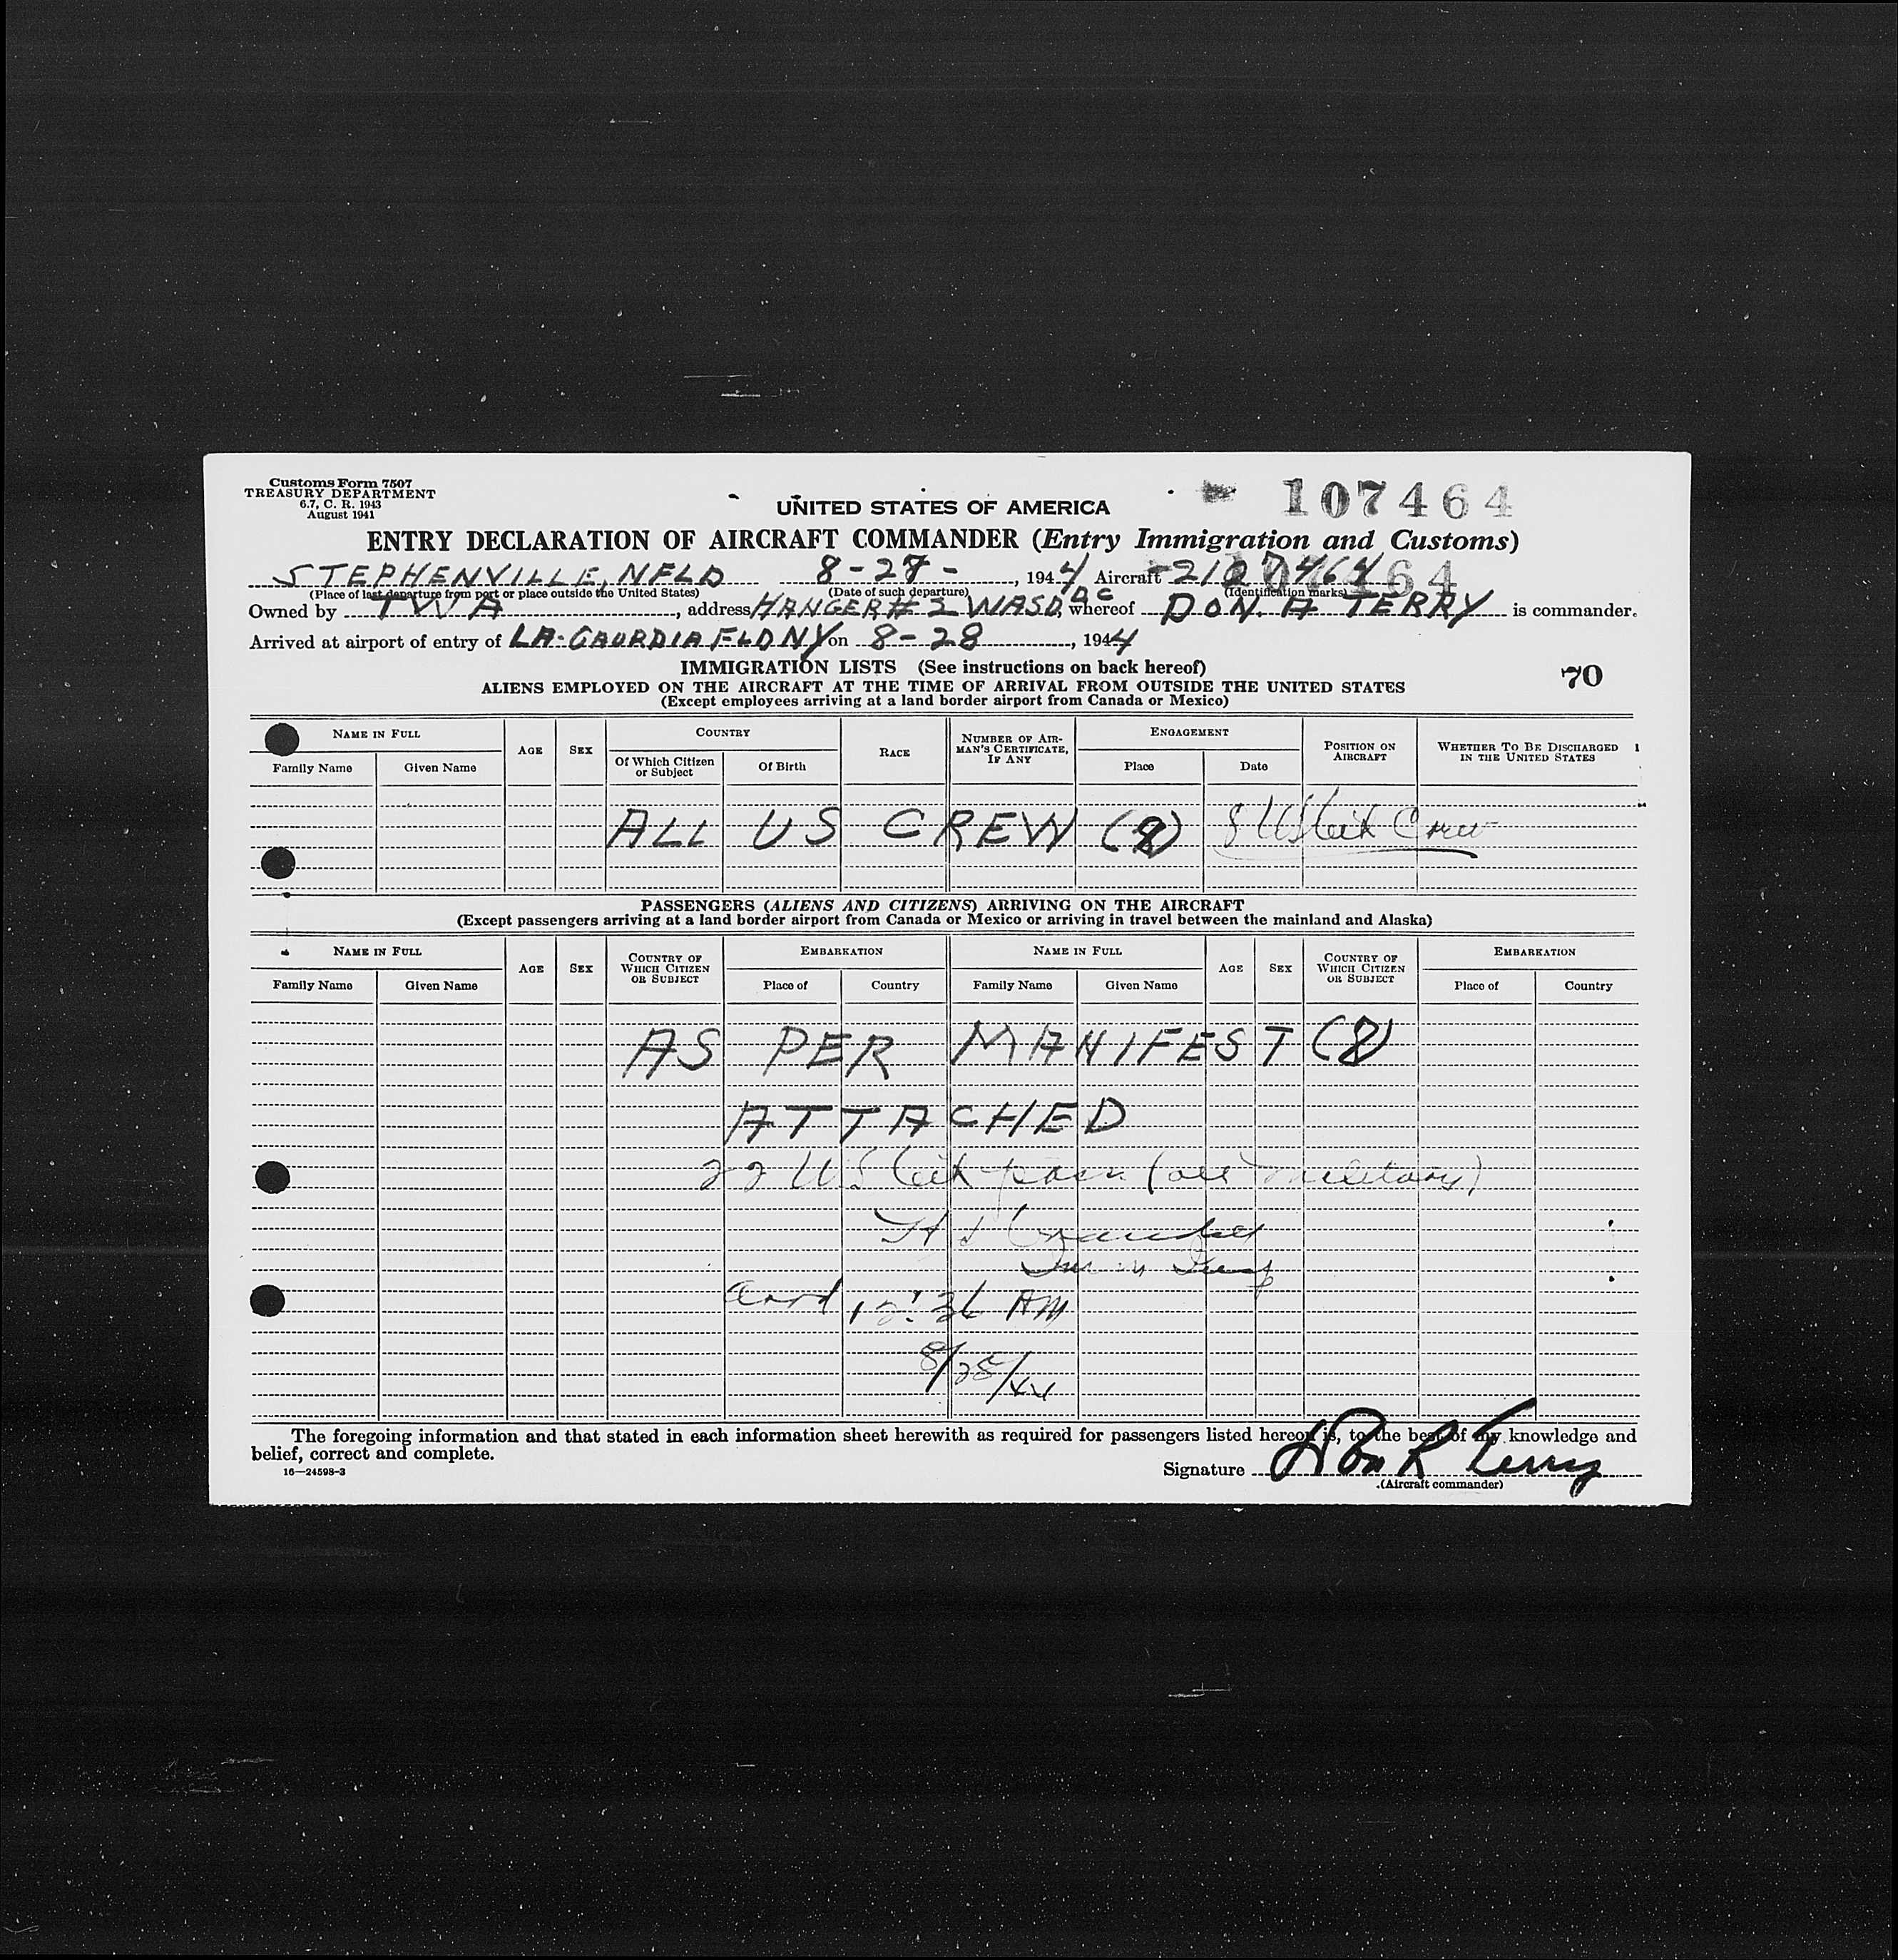 Customs Form 7507
TREASURY DEPARTMENT
6.7, C. R. 1943
August 1941
107464
UNITED STATES OF AMERICA
ENTRY DECLARATION OF AIRCRAFT COMMANDER (Entry Immigration and Customs)
STEPHENVILLE, NFLD 8-27-, 1944 Aircraft 2107464
(Place of last departure from port or place outside the United States) (Date of such departure) (Identification marks)
Owned by TWA, address HANGER #2 WASD, DC whereof DON. A TERRY is commander.
Arrived at airport of entry of LA-GAURDIA FLD NY on 8-28, 1944
IMMIGRATION LISTS (See instructions on back hereof)
70
ALIENS EMPLOYED ON THE AIRCRAFT AT THE TIME OF ARRIVAL FROM OUTSIDE THE UNITED STATES
(Except employees arriving at a land border airport from Canada or Mexico)
NAME IN FULL AGE SEX COUNTRY RACE NUMBER OF AIRMAN'S CERTIFICATE, IF ANY ENGAGEMENT POSITION ON AIRCRAFT WHETHER TO BE DISCHARGED IN THE UNITED STATES
Family Name Given Name Of Which Citizen or Subject Of Birth Place Date
ALL US CREW (8) 8 US Cit Crew
PASSENGERS (ALIENS AND CITIZENS) ARRIVING ON THE AIRCRAFT
(Except passengers arriving at a land border airport from Canada or Mexico or arriving in travel between the mainland and Alaska)
NAME IN FULL AGE SEX COUNTRY OF WHICH CITIZEN OR SUBJECT EMBARKATION NAME IN FULL AGE SEX COUNTRY OF WHICH CITIZEN OR SUBJECT EMBARKATION
Family Name Given Name Place of Country Family Name Given Name Place of Country
AS PER MANIFEST (8)
ATTACHED
22 US Cit pass (all military)
Imm Insp
Arrd 12:36 AM
8/28/44
The foregoing information and that stated in each information sheet herewith as required for passengers listed hereon is, to the best of my knowledge and
belief, correct and complete.
16—24598-3
Signature Don R Terry
(Aircraft commander)